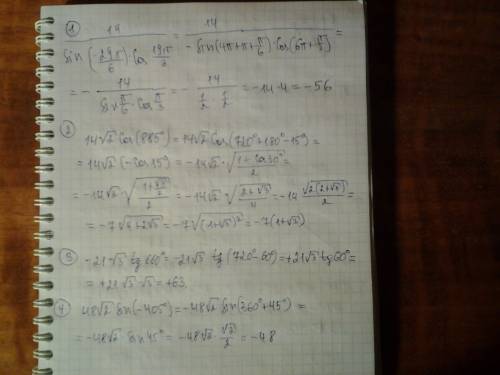 ① 14 / (sin(-29π/6) · cos 19π/3) = 14 / (-sin(4π+π-π/6) · cos(6π+π/3)) =
= - 14 / (sin π/6 · cos π/3) = - 14 / (1/2 · 1/2) = -14·4 = -56
② 14√2 cos(885°) = 14√2 cos(720°+180°-15°) =
= 14√2 (-cos 15°) = -14√2 · √((1+cos 30°)/2) =
= -14√2 · √((1+√3/2)/2) = -14√2 · √((2+√3)/4) = -14 √(2(2+√3))/2 =
= -7√(4+2√3) = -7√((1+√3)²) = -7(1+√3)
③ -21√3 tg 660° = -21√3 tg(720°-60°) = +21√3 tg 60° =
= +21√3 · √3 = +63
④ 48√2 sin(-405°) = -48√2 sin(360°+45°) =
= -48√2 sin 45° = -48√2 · √2/2 = -48